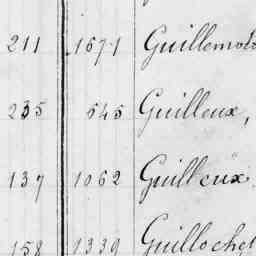 211 1671 Guillemot
235 545 Guilleux,
137 1062 Guilleux
158 1339 Guillochet